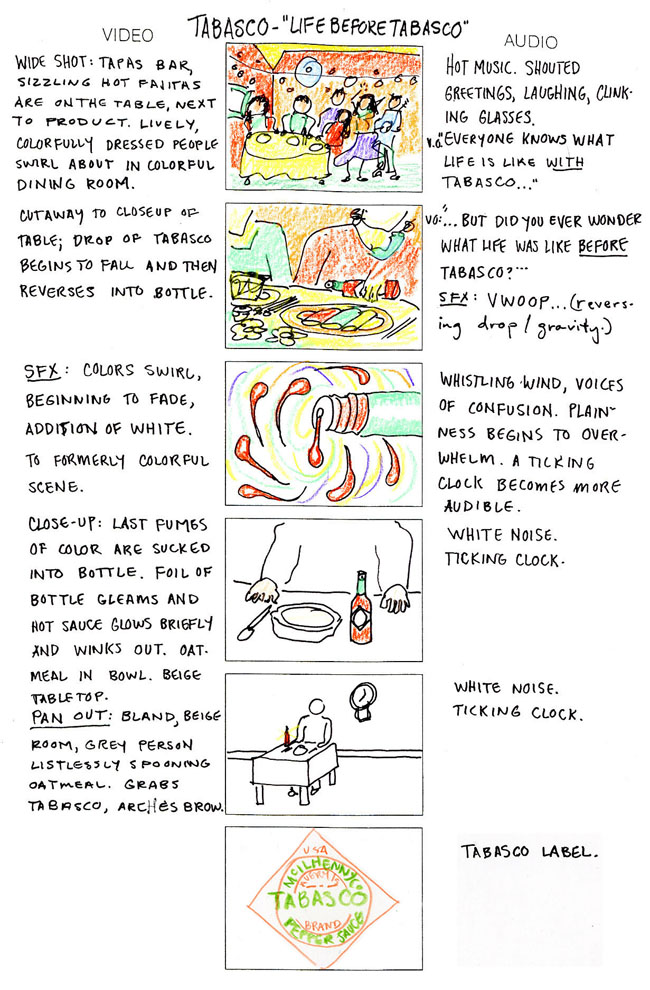 TABASCO - "LIFE BEFORE TABASCO"
VIDEO
AUDIO
WIDE SHOT: TAPAS BAR,
SIZZLING HOT FAJITAS
ARE ON THE TABLE, NEXT
TO PRODUCT. LIVELY,
COLORFULLY DRESSED PEOPLE
SWIRL ABOUT IN COLORFUL
DINING ROOM.
HOT MUSIC. SHOUTED
GREETINGS, LAUGHING, CLINK-
ING GLASSES.
V.O. "EVERYONE KNOWS WHAT
LIFE IS LIKE WITH
TABASCO..."
CUTAWAY TO CLOSEUP OF
TABLE; DROP OF TABASCO
BEGINS TO FALL AND THEN
REVERSES INTO BOTTLE.
VO: "... BUT DID YOU EVER WONDER
WHAT LIFE WAS LIKE BEFORE
TABASCO?"...
SFX: VWOOP... (revers-
ing drop / gravity.)
SFX: COLORS SWIRL,
BEGINNING TO FADE,
ADDITION OF WHITE.
TO FORMERLY COLORFUL
SCENE.
WHISTLING WIND, VOICES
OF CONFUSION. PLAIN-
NESS BEGINS TO OVER-
WHELM. A TICKING
CLOCK BECOMES MORE
AUDIBLE.
CLOSE-UP: LAST FUMES
OF COLOR ARE SUCKED
INTO BOTTLE. FOIL OF
BOTTLE GLEAMS AND
HOT SAUCE GLOWS BRIEFLY
AND WINKS OUT. OAT-
MEAL IN BOWL. BEIGE
TABLETOP.
WHITE NOISE.
TICKING CLOCK.
PAN OUT: BLAND, BEIGE
ROOM, GREY PERSON
LISTLESSLY SPOONING
OATMEAL. GRABS
TABASCO, ARCHES BROW.
WHITE NOISE.
TICKING CLOCK.
USA
McILHENNY CO
TABASCO
BRAND
PEPPER SAUCE
TABASCO LABEL.